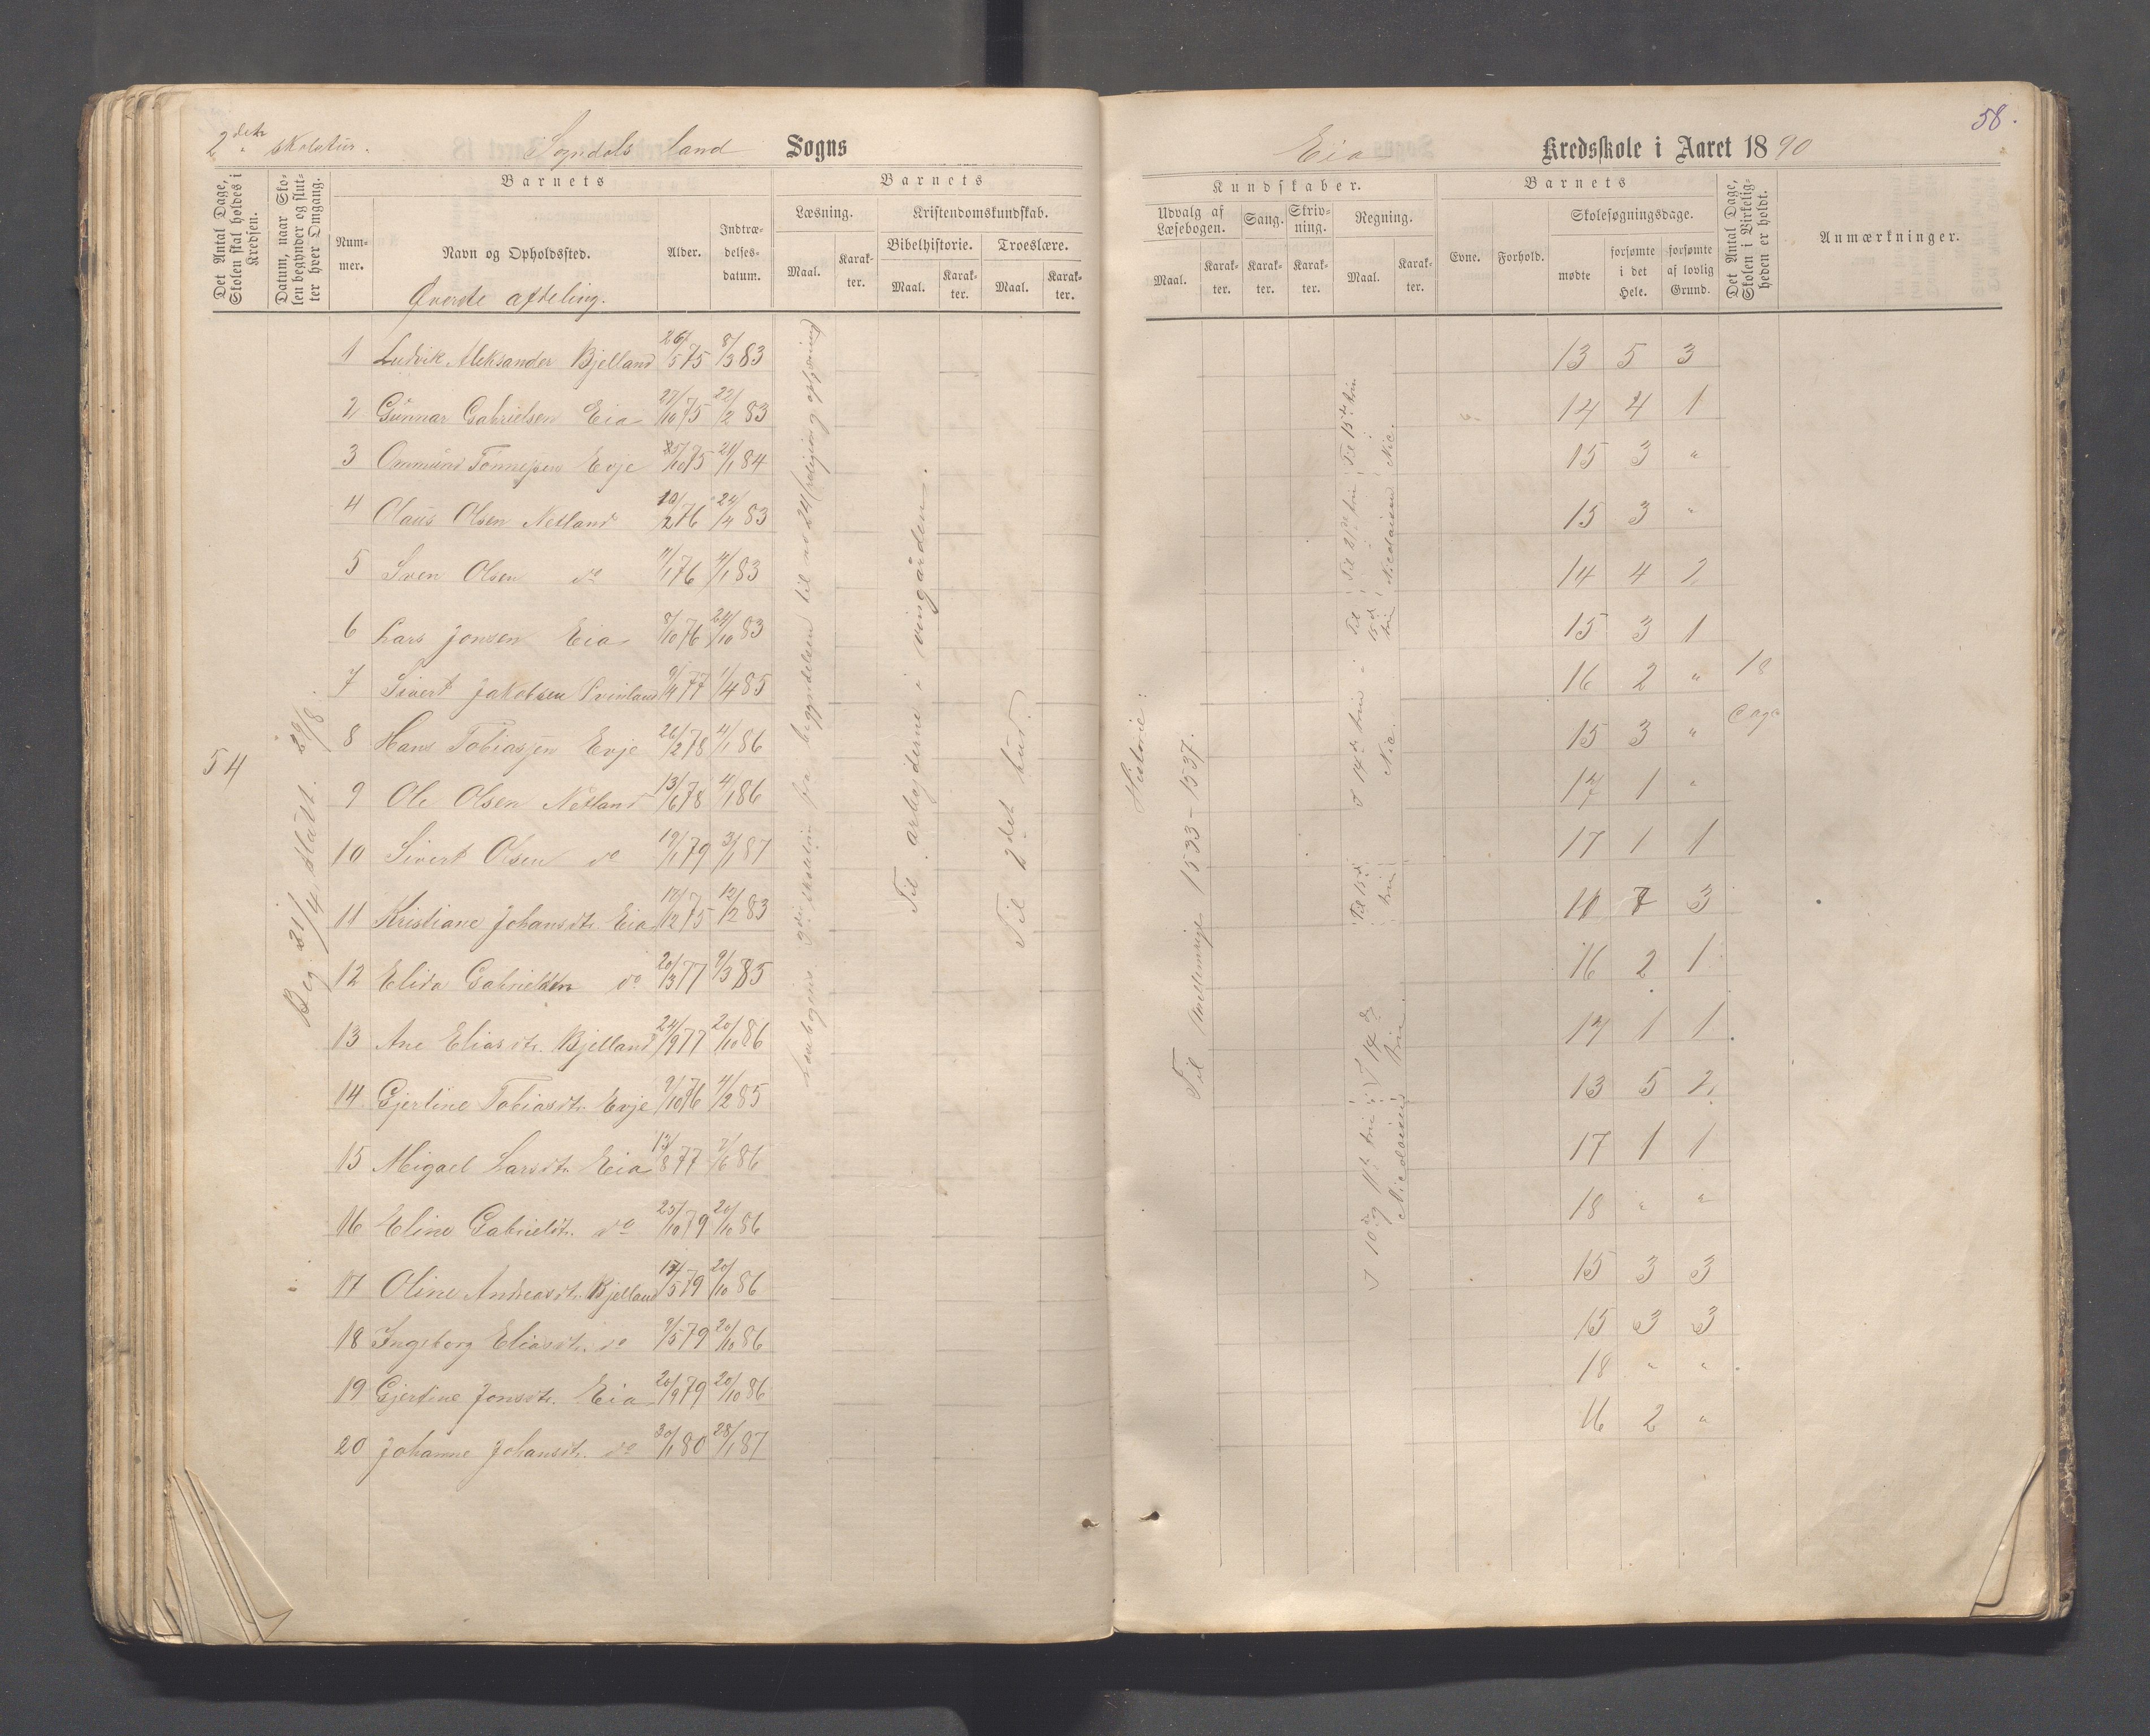 2det skoletur.
Sogndals land Sogns
Eia Kredsskole i Aaret 1890
58.
Det Antal Dage, Skolen skal holdes i Kredsen.
Datum, naar Skolen begynder og slutter hver Omgang.
Barnets
Nummer.
Navn og Opholdssted.
Alder.
Indtrædelsesdatum.
Barnets
Læsning.
Kristendomskundskab.
Bibelhistorie.
Troeslære.
Maal.
Karakter.
Maal.
Karakter.
Maal.
Karakter.
Kundskaber.
Udvalg af Læsebogen.
Sang.
Skrivning.
Regning.
Maal.
Karakter.
Karakter.
Karakter.
Maal.
Karakter.
Barnets
Evne.
Forhold.
Skolesøgningsdage.
mødte
forsømte i det Hele.
forsømte af lovlig Grund.
Det Antal Dage, Skolen i Virkeligheden er holdt.
Anmærkninger.
Øverste afdeling.
54
Beg. 21/4 slutt. 29/8.
1 Ludvik Aleksander Bjelland 26/5 75 8/3 83 13 5 3
2 Gunnar Gabrielsen Eia 27/10 75 22/2 83 14 4 1
3 Ommund Tønnesen Evje 25/10 75 21/1 84 15 3 "
4 Olaus Olsen Netland 10/2 76 24/4 83 15 3 "
5 Sven Olsen do 11/1 76 4/1 83 14 4 2
6 Lars Jonsen Eia 8/10 76 24/10 83 15 3 1
7 Sivert Jakobsen 9/4 77 1/4 85 16 2 " 18
8 Hans Tobiassen Evje 26/2 78 4/1 86 15 3 " dage
9 Ole Olsen Netland 13/6 78 4/1 86 17 1 "
10 Sivert Olsen do 19/1 79 3/1 87 17 1 1
11 Kristiane Johansdtr. Eia 17/12 75 12/2 83 10 7 3
12 Elida Gabrielsen do 20/3 77 9/3 85 16 2 1
13 Ane Eliasdtr. Bjelland 24/9 77 20/10 86 17 1 1
14 Gjertine Tobiasdtr. Evje 9/10 76 4/2 85 13 5 2
15 Migael Larsdtr. Eia 13/8 77 7/6 86 17 1 1
16 Eline Gabrielsdtr. do 25/10 79 20/10 86 18 " "
17 Oline Andreasdtr. Bjelland 17/5 79 20/10 86 15 3 3
18 Ingeborg Eliasdtr. do 9/5 79 20/10 86 15 3 3
19 Gjertine Jonsdtr. Eia 20/9 79 20/10 86 18 " "
20 Johanne Johansdtr. do 30/1 80 28/1 87 16 2 "
Læsebogens skoletrin fra begyndelsen til no 24
Til arbejderne i vingården.
Til 2det bud.
Historie:
Til 1533-1537.
Til 15de trin
I 14de trin
Nic.
Til 15de trin
I 10de og 11te trin
Nicolaisens